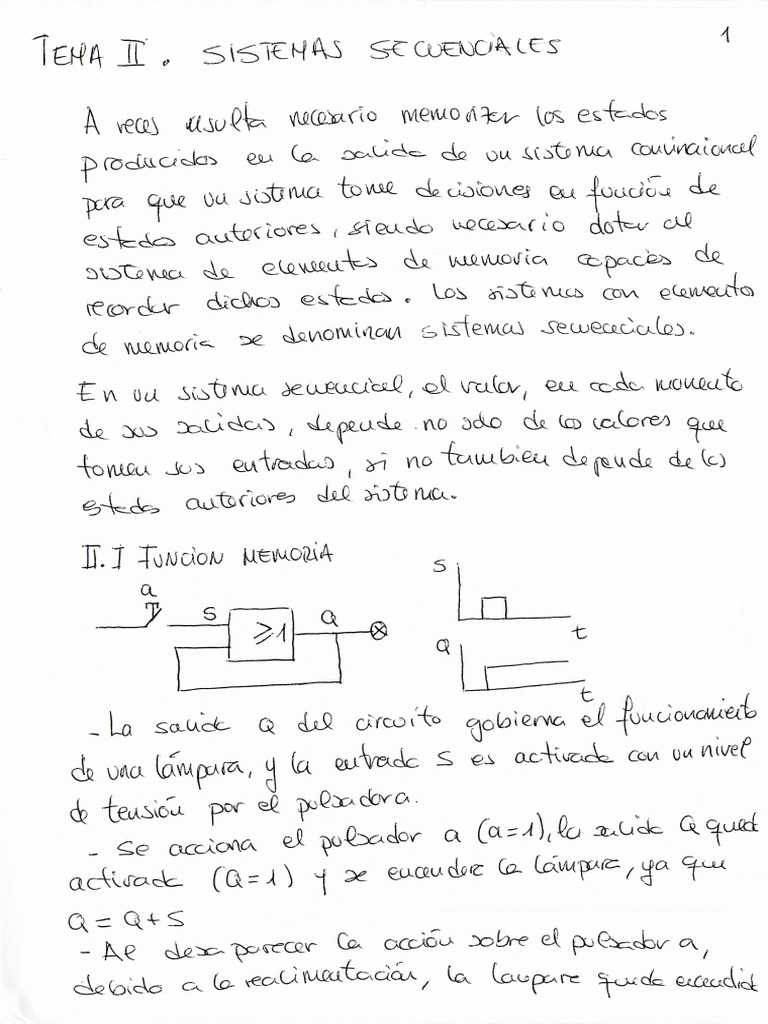 1
TEMA II. SISTEMAS SECUENCIALES
A veces resulta necesario memorizar los estados
producidos en la salida de un sistema convinacional
para que un sistema tome decisiones en función de
estados anteriores, siendo necesario dotar al
sistema de elementos de memoria capaces de
recordar dichos estados. Los sistemas con elementos
de memoria se denominan sistemas secuenciales.
En un sistema secuencial, el valor, en cada momento
de sus salidas, depende no solo de los valores que
tomen sus entradas, si no tambien depende de los
estados anteriores del sistema.
II.I FUNCION MEMORIA
a
S
≥1
Q
S
t
Q
t
- La salida Q del circuito gobierna el funcionamiento
de una lámpara, y la entrada S es activada con un nivel
de tensión por el pulsador a.
- Se acciona el pulsador a (a=1), la salida Q queda
activada (Q=1) y se encenderá la lámpara, ya que
Q = Q+S
- Al desaparecer la acción sobre el pulsador a,
debido a la realimentación, la lampara queda encendida